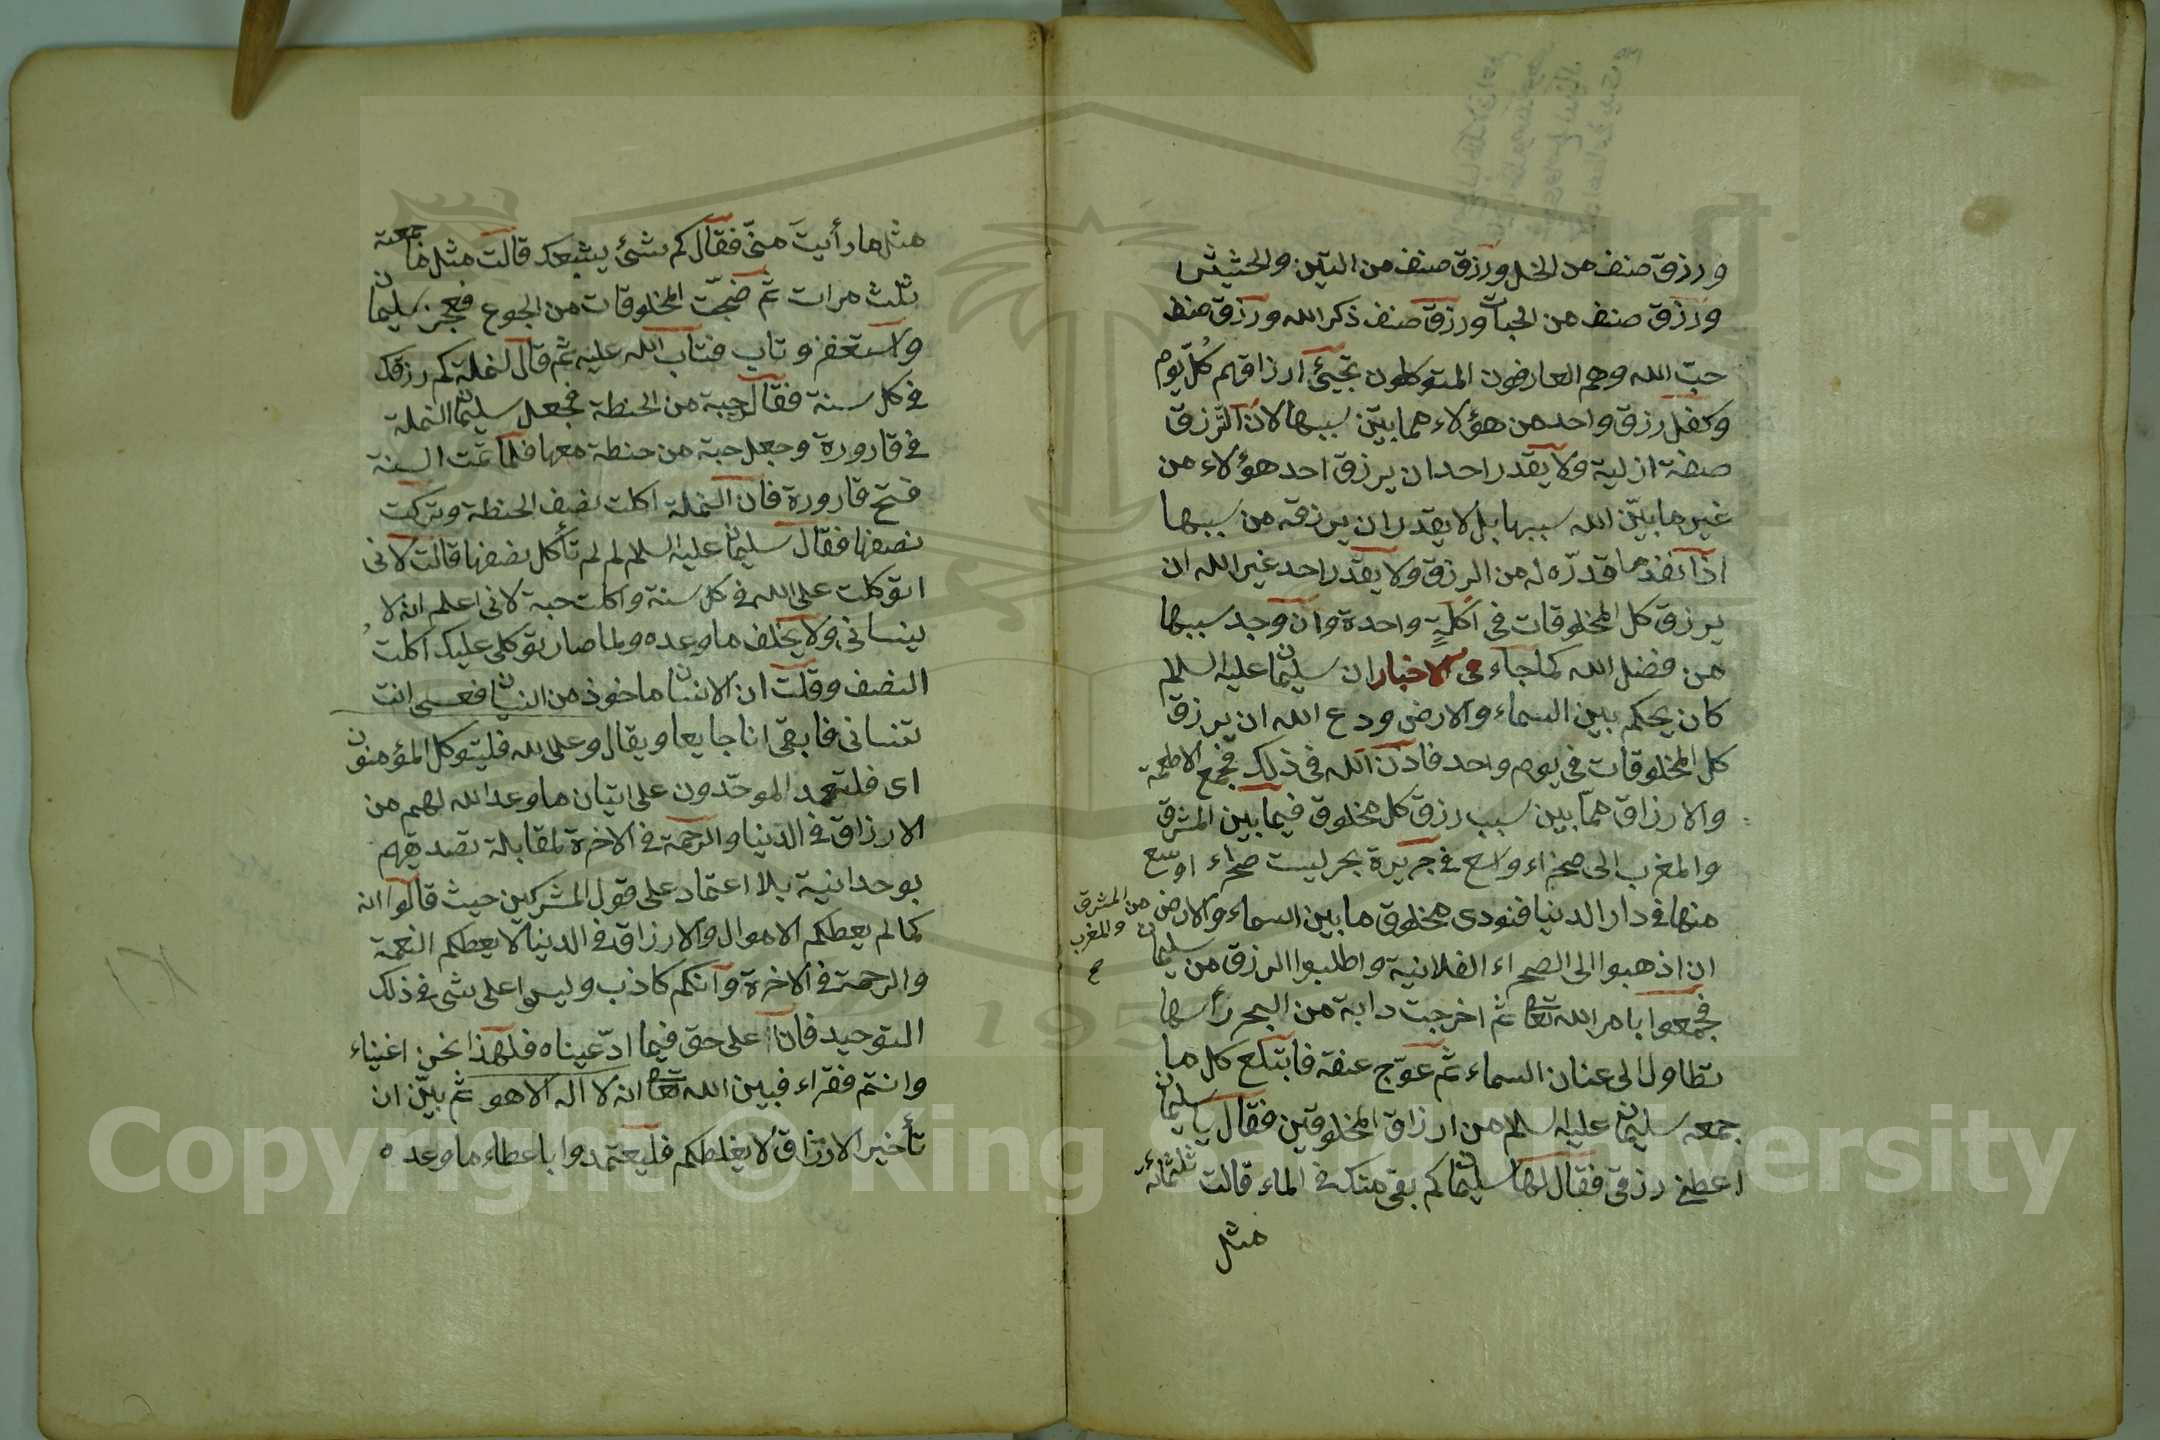 ورزق صنف من الخل ورزق صنف من التين والحشيش
ورزق صنف من الحبات ورزق صنف ذكر الله ورزق صنف
حبّ الله وهم العارفون المتوكلون تجيئ ارزاقهم كُلّ يوم
وكفل رزق واحد من هؤلاء مما بيّن سببها لان الرزق
صفة ازلية ولا يقدر احد ان يرزق احد هؤلاء من
غير ما بيّن الله سببها بل لا يقدر ان يرزقه من سببها
اذا نفد ما قدّره له من الرزق ولا يقدر احد غير الله ان
يرزق كل المخلوقات في اكلةٍ واحدة وان وجد سببها
من فضل الله كما جاء في الاخبار ان سليمان عليه السلام
كان يحكم بين السماء والارض ودع الله ان يرزق
كل المخلوقات في يوم واحد فاذن الله في ذلك فجمع الاطعمة
والارزاق مما بين سبب رزق كل مخلوق فيما بين المشرق
والمغرب الى صحراء واسع في جزيرة بحر ليست صحراء اوسع
منها في دار الدنيا فنودى مخلوق ما بين السماء والارض
من المشرق
والمغرب
ان اذهبوا الى الصحراء الفلانية واطلبوا الرزق من سليمان
فجمعوا بامر الله تعا ثم اخرجت دابة من البحر رأسها
تطاول الى عنان السماء ثم عوّج عنقه فابتلع كل ما
جمعه سليمان عليه السلام من ارزاق المخلوقين فقال يا سليمان
اعطني رزقى فقال لها سليمان كم بقى متك في الماء قالت ثلثمائة
مثل
مثل ما رأيت منّى فقال كم شئ يشبعك قالت مثل ما جمعته
ثلث مرات ثم ضجّت المخلوقات من الجوع فعجز سليمان
واستغفر وتاب فتاب الله عليه ثم قال لنملة كم رزقك
في كل سنة فقال حبة من الحنطة فجعل سليمان النملة
في قارورة وجعل حبة من حنطة معها فلما تمت السنة
فتح قارورة فان النملة اكلت نصف الحنطة وتركت
نصفها فقال سليمان عليه السلام لم لم تأكل نصفها قالت لانى
اتوكلت على الله في كل سنة واكلت حبة لانى اعلم انه لا
ينسانى ولا يخلف ما وعده ولما صار توكلى عليك اكلت
النصف وقلت ان الانسان ماخوذ من النسيان فعسى انت
تنسانى فابقى انا جايعا ويقال وعلى الله فليتوكل المؤمنون
اى فليتعمد الموحّدون على اتيان ما وعد الله لهم من
الارزاق في الدنيا والرحمة في الاخرة لمقابلة تصديقهم
بوحدانية بلا اعتماد على قول المشركين حيث قالوا انه
كما لم يعطكم الاموال والارزاق في الدنيا لا يعطكم النعمة
والرحمة في الاخرة وانكم كاذب وليسوا على شى في ذلك
التوحيد فانا على حق فيما ادّعيناه فلهذا نحن اغنياء
وانتم فقراء فبين الله تعا انه لا اله الا هو ثم بيّن ان
تأخير الارزاق لا يغلطكم فليعتمدوا باعطاء ما وعده
Copyright © King Saud University
195